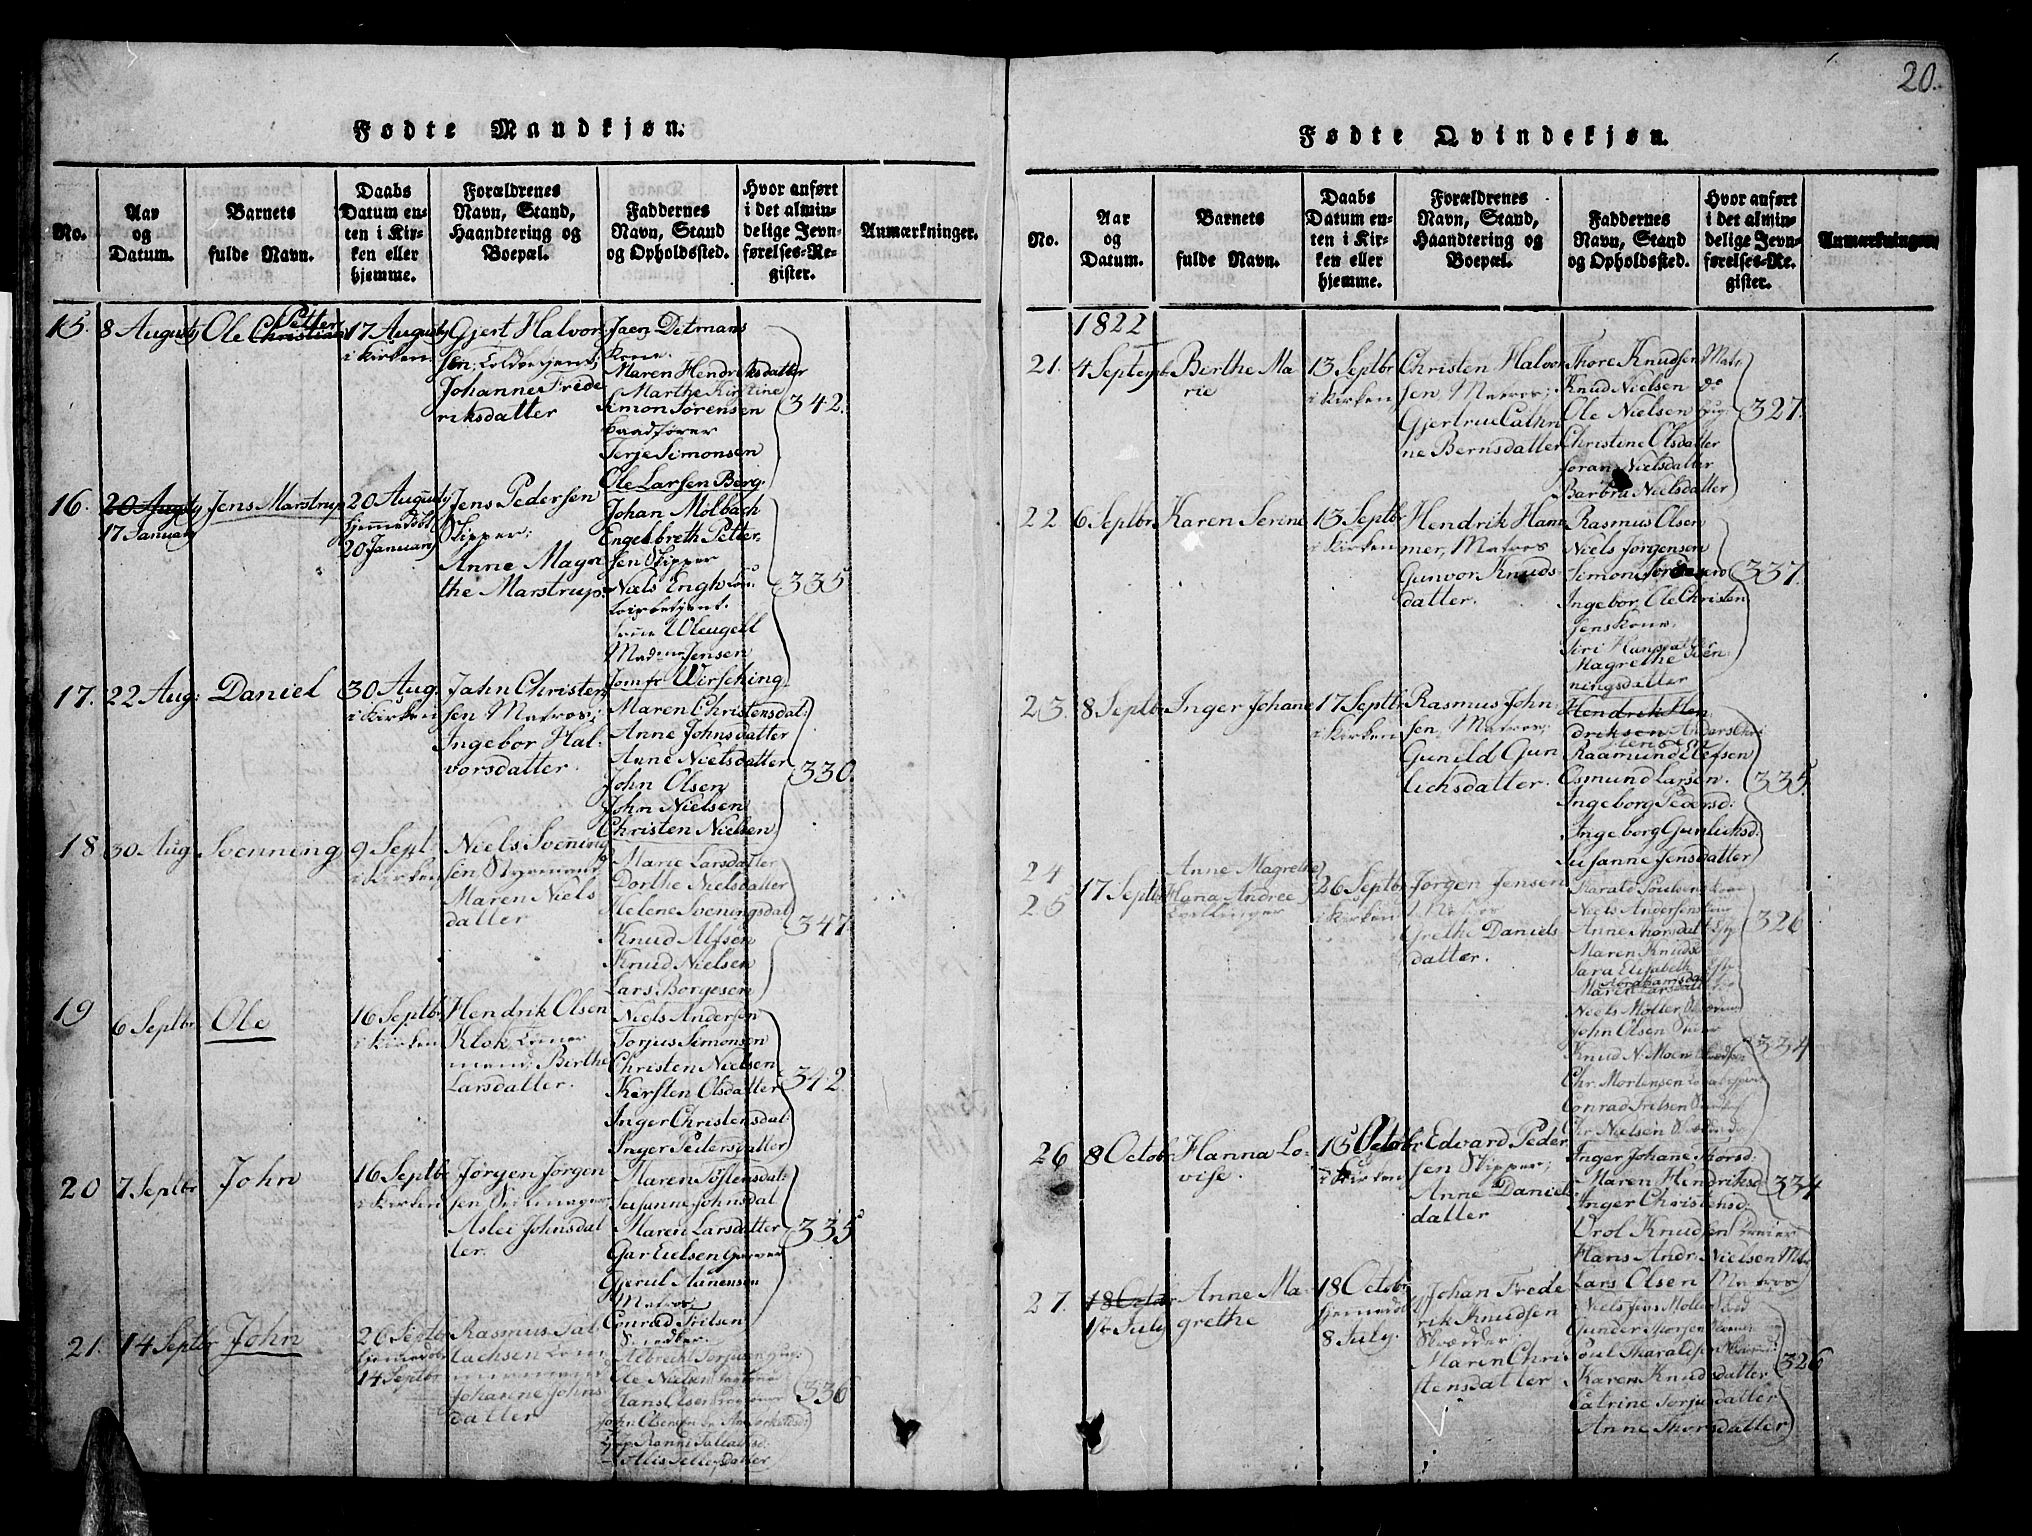 20.
Fødte Mandkjøn.
No.
Aar
og
Datum.
Barnets
fulde Navn.
Daabs
Datum en-
ten i Kir-
ken eller
hjemme.
Forældrenes
Navn, Stand,
Haandtering og
Boepæl.
Faddernes
Navn, Stand
og Opholdssted.
Hvor anført
i det almin-
delige Jevn-
førelses-Re-
gister.
Anmærkninger.
15.
8 Augusty
Ole Christian
Petter
17 Augusty
i Kirken
Gjert Halvor
sen,
Johanne Frede
riksdatter
Jaen Ditmans
Kone.
Maren Hendriksdatter
Marthe Kirstine
Simon Sørensen
Baadfører
Terje Simonsen
Ole Larsen Berg.
342.
16.
20 Augty
17 January
Jens Marstrup
20 Augusty
hjemmedøbt
20 January
Jens Pedersen
Skipper;
Anne Magre
the Marstrup.
Johan Molbach
Engelbreth Petter
sen Skipper
Niels Engh
Madme Jensen
Jomfr Wirsching
335
17.
22 Aug:
Daniel
30 Aug.
i Kirken
Jahn Christen
sen Matros;
Ingebor Hal-
vorsdatter.
Maren Christensdat:
Anne Johnsdatter
Anne Nielsdatter
John Olsen
John Nielsen
Christen Nielsen
330.
18
30 Aug
Svenning
9 Sept.
i Kirken
Niels Svening
sen Styrmand
Maren Niels
datter
Marie Larsdatter
Dorthe Nielsdatter
Helene Sveningsdat
Knud Alfsen
Knud Nielsen
Lars Borgesen
347
19
6 Septbr
Ole
16 Septbr
i Kirken
Hendrik Olsen
Klok
mand; Birthe
Larsdatter.
Niels Andersen
Torjus Simonsen
Christen Nielsen
Kirsten Olsdatter
Inger Christensdat:
Inger Pedersdatter
342
20
7 Septbr
John
16 Septbr
i Kirken
Jørgen Jørgen
sen
Aslei Johnsdat
ter.
Maren Töstensdat:
Susanne Johnsdat
Maren Larsdatter
Gar Eielsen
Gjerul Aanensen
Matros
Conrad Irilsen
Snedker.
335
21.
14 Septbr
John
26 Septbr
hjemmedøbt
14 Septbr
Rasmus Tal
lachsen
Johanne Johns
datter
Albrecht Torjusen
Ole Nielsen
Hans Olsen
John Olsen
Ronne Tallachsd:
Alis Tellefsdatter
336
Fødte Qvindekjøn.
No.
Aar
og
Datum.
Barnets
fulde Navn.
Daabs
Datum en-
ten i Kir-
ken eller
hjemme.
Forældrenes
Navn, Stand,
Haandtering og
Boepæl.
Faddernes
Navn, Stand
og Opholdssted.
Hvor anført
i det almin-
delige Jevn-
førelses-Re-
gister.
Anmærkninger
1822
21.
4 Septemb
Berthe Ma
rie
13 Septbr
i Kirken
Christen Halvor
sen, Matros;
Gjertrue Cathri
ne Bernsdatter
Thore Knudsen Matr
Knud Nielsen do
Ole Nielsen
Christine Olsdatter
Joran Nielsdatter
Barbra Nielsdatter
327.
22
6 Septbr
Karen Serine
13 Septbr
i Kirken
Hendrik Ham
mer, Matros
Gunvor Knuds
datter.
Rasmus Olsen
Niels Jørgensen
Simon
Ingebor Ole Christen
sens Kone.
Siri Hansdatter
Magrethe Sven
ningsdatter
337.
23.
8 Septbr
Inger Johane
17 Septbr
i Kirken
Rasmus John
sen, Matros;
Gunild Gun
lichsdatter.
Hendrik Hen
driksen Anders Chri
stensen
Raamund Elefsen
Osmund Larsen.
Ingeborg Pedersd:
Ingeborg Gunlichsd:
Susanne Jensdatter
335.
24
25
17 Septbr
Anne Magrethe
Hana Andree
26 Septbr
i Kirken
Jørgen Jensen
Grethe Daniels
datter.
Harald Poulsens Kone
Niels Andersens Kone
Anne Thorsdat
Maren Knudse
Sara Elisabeth
Abrahamsdat
Maren Larsdatter
Niels Møller
John Olsen
Knud N. Moen
Chr. Mortensen
Conrad Irilsen
Chr. Nielsen
326
334
26
8 Octobr
Hanna Lo-
vise.
15 Octobr
i Kirken
Edvard Peder
sen Skipper;
Anne Daniels
datter
Inger Johane Thorsd:
Maren Hendriksd
Inger Christensd:
Orol Knudsen
Hans Andr. Nielsen Mat
Lars Olsen Matros
334
27.
18 Octbr
1ste July
Anne Ma-
grethe
18 Octobr
hjemmedøbt
8 July.
Johan Frede
rik Knudsen
Skrædder;
Maren Chris
stensdatter
Niels Jens Moller
Gunder Thorsen
Poul Tharaldsen
Karen Knudsdatter
Catrine Torjusdatter
Anne Thorsdatter
326